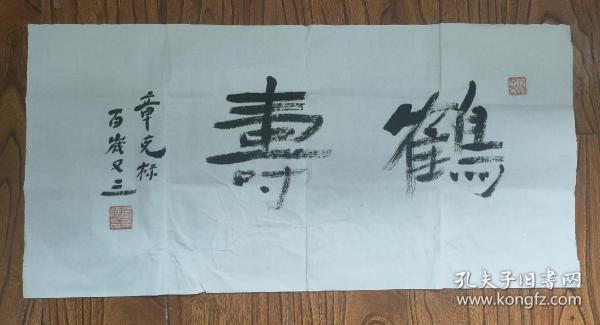 鶴壽
章克标
百歲又三
孔夫子旧书网
www.kongfz.com